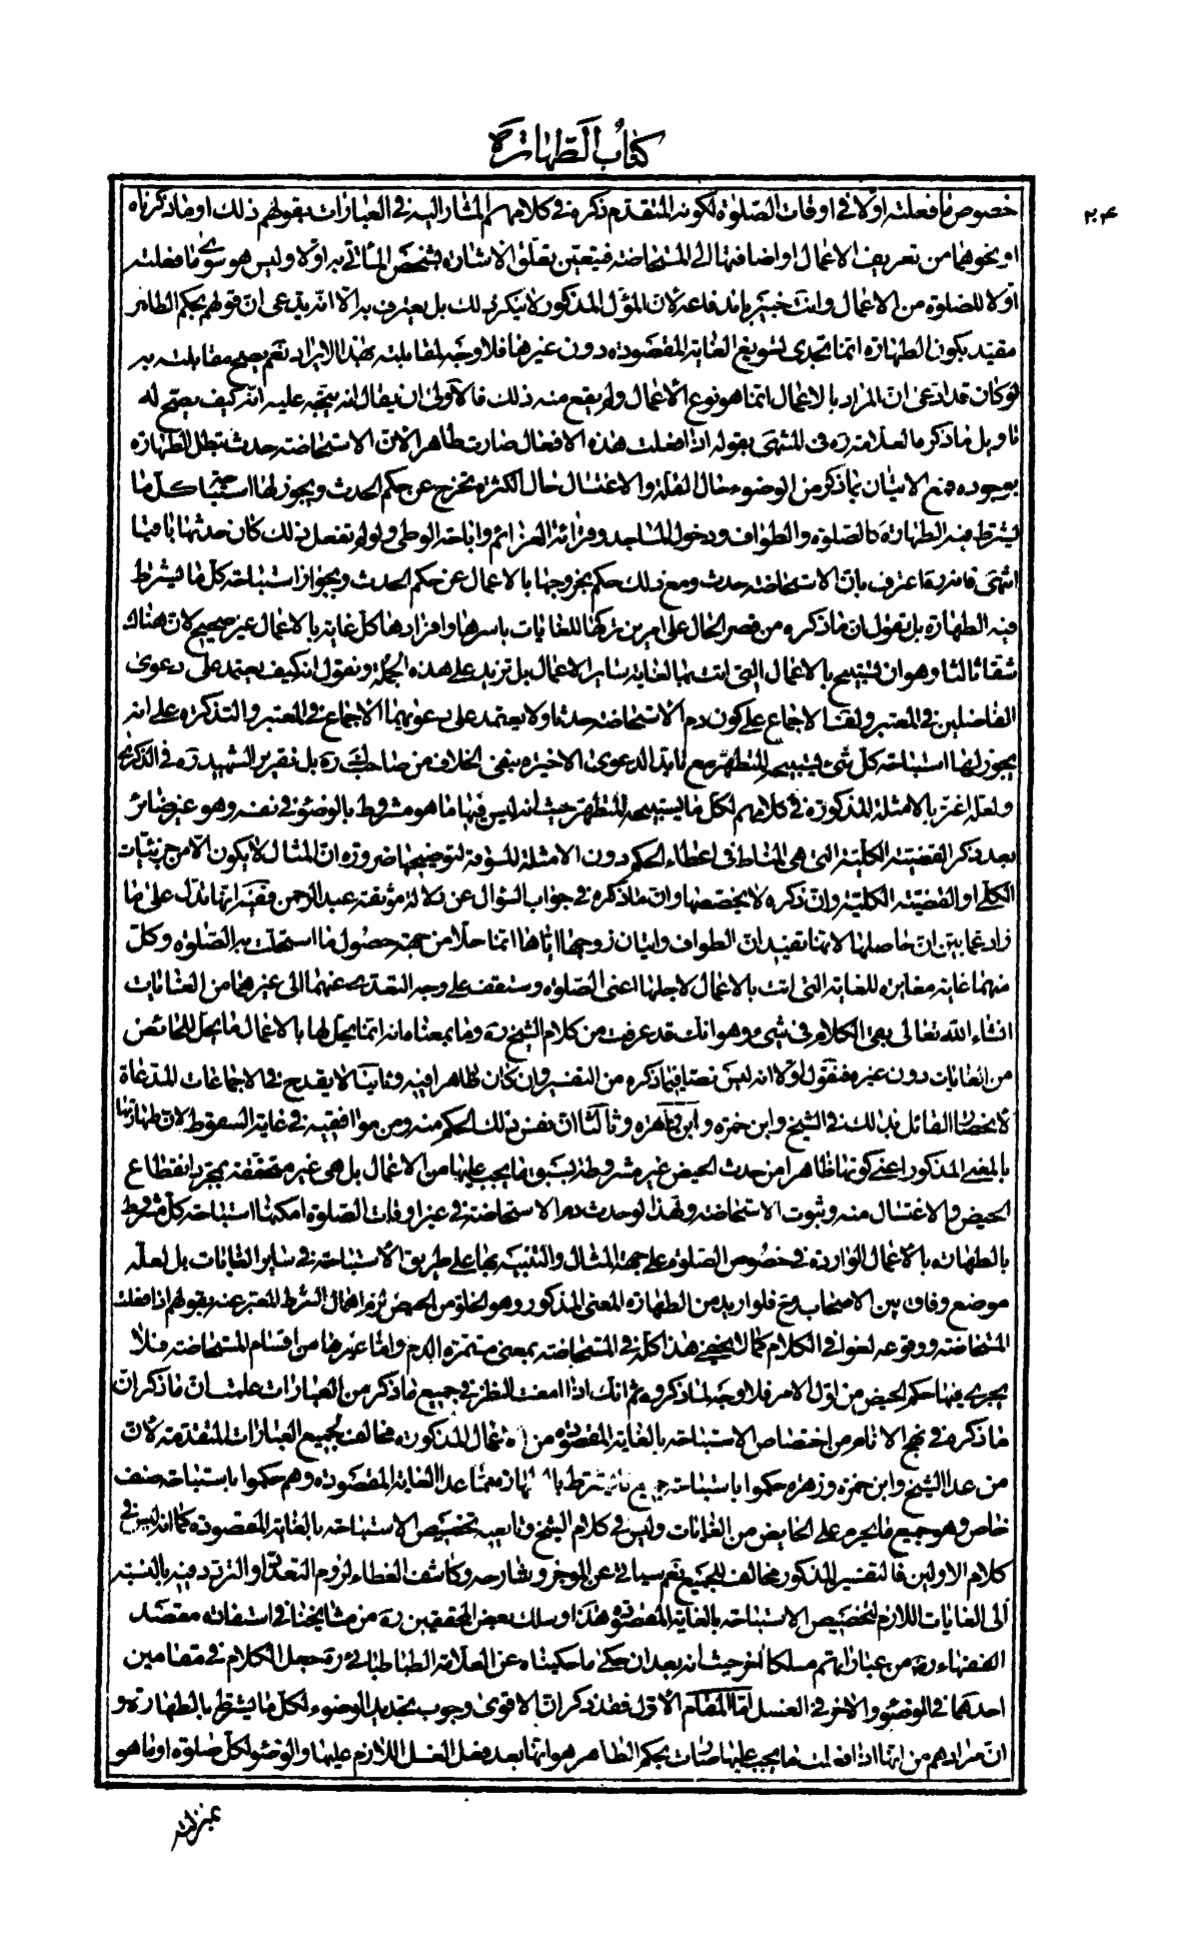 كتاب الطهارة
۲۰۴
خصوص ما فعلته اولا في اوقات الصلوة لكونه المتقدم ذكره في كلامهم المشار اليه في العبارات بقولهم ذلك او ما ذكرناه
او نحوهما من تعريف الاعمال او اضافتها الى المستحاضة فيتعين تعلق الاشارة بشخص المأتي به اولا وليس هو سوى ما فعلته
اولا للصلوة من الاعمال وانت خبير باندفاعه لان المؤل المذكور لا ينكر ذلك بل يعترف به الا انه يدعى ان قولهم بحكم الطاهر
مقيد بكون الطهارة انما تجدى لتسويغ الغاية المقصودة دون غيرها فلا وجه لمقابلته بهذا الايراد نعم يصح مقابلته به
لو كان قد ادعى ان المراد بالاعمال انما هو نوع الأعمال ولم يقع منه ذلك فالأولى ان يقال انه يتجه عليه انه كيف يصح له
تاويل ما ذكره العلامة ره فى المنتهى بقوله اذا فعلت هذه الافعال صارت طاهرا لان الاستحاضة حدث تبطل الطهارة
بوجوده فمع الاتيان بما ذكر من الوضوء حال القلة والاغتسال حال الكثرة تخرج عن حكم الحدث ويجوز لها استباحة كل ما
يشترط فيه الطهارة كالصلوة والطواف ودخول المساجد وقرائة العزائم واباحة الوطى ولو لم تفعل ذلك كان حدثها باقيا
انتهى فانه ره قد اعترف بان الاستحاضة حدث ومع ذلك حكم بخروجها بالاعمال عن حكم الحدث وبجواز استباحة كل ما يشترط
فيه الطهارة بل نقول ان ما ذكره من قصر الحال على امرين تركها للغايات باسرها وافرادها كل غاية بالاعمال غير صحيح لان هناك
شقا ثالثا وهو ان تستبيح بالاعمال التى اتت بها لغاية ساير الاعمال بل تزيد على هذه الجملة ونقول انه كيف يعتمد على دعوى
الفاضلين في المعتبر ولفتا الاجماع على كون دم الاستحاضة حدثا ولا يعتمد على دعويهما الاجماع في المعتبر والتذكرة على انه
يجوز لها استباحة كل شئ يستبيحه المتطهر مع تايد الدعوى الاخيرة بنفى الخلاف من صاحب ك ره بل تقرير الشهيد ره في الذكرى
ولعله اغتر بالامثلة المذكورة في كلامهم لكل ما يستبيحه المتطهر حيث انه ليس فيها ما هو مشروط بالوضوء في نفسه وهو غير ضائر
بعد ذكر القضية الكلية التى هى المناط فى اعطاء الحكم دون الامثلة المسوقة لتوضيحها ضرورة ان المثال لا يكون الا من جزئيات
الكلى او القضية الكلية وان ذكره لا يخصصها وان ما ذكره في جواب السؤال عن دلالة موثقة عبد الرحمن ففيه انها تدل على ما
زاد عما بين ان حاصلها لانها تفيد ان الطواف واتيان زوجها اياها انما حلا من جهة حصول ما استحلت به الصلوة وكل
منهما غاية مغايرة للغاية التى اتت بالاعمال لاجلها اعنى الصلوة وستقف على وجه التعدى عنهما الى غيرهما من الغايات
انشاء الله تعالى بقى الكلام فى شئ وهو انك قد عرفت من كلام الشيخ ره وما بمعناه انه انما يحل لها بالاعمال ما يحل للحائض
من الغايات دون غيره فنقول اولا انه ليس نصا فيما ذكره من التفسير وان كان ظاهرا فيه وثانيا لا يقدح في الاجماعات المدعاة
لانحصار القائل بذلك في الشيخ وابن حمزة وابن زهرة وثالثا ان نفس ذلك الحكم منه ومن موافقيه في غاية السقوط لان طهارتها
بالمعنى المذكور اعنى كونها طاهرا من حدث الحيض غير مشروطة بشئ مما يجب عليها من الاعمال بل هى غير متحققة بمجرد انقطاع
الحيض والاغتسال منه وثبوت الاستحاضة ولهذا لو حدث دم الاستحاضة في غير اوقات الصلوة امكنها استباحة كل مشروط
بالطهارة بالأعمال الواردة في خصوص الصلوة على جهة المثال والتنبيه بها على طريق الاستباحة في ساير الغايات بل لعله
موضع وفاق بين الاصحاب وح فلو اريد من الطهارة المعنى المذكور وهو الخلو من الحيض لزم اهمال الشرط المعتبر عنه بقولهم اذا فعلت
المستحاضة ووقوعه لغوا في الكلام كما لا يخفى هذا كله في المستحاضة بمعنى مستمرة الدم واما غيرها من اقسام المستحاضة فلا
يجرى فيها حكم الحيض من اول الامر فلا وجه لما ذكروه ثم انك اذا امعنت النظر في جميع ما ذكر من العبارات علمت ان ما ذكر ان
ما ذكره في نهج الانام من اختصاص الاستباحة بالغاية المقصودة من الاعمال المذكورة مخالف لجميع العبارات المتقدمة لان
من عدا الشيخ وابن حمزة وزهرة حكموا باستباحة جميع ما يشترط بالطهارة مما عدا الغاية المقصودة وهم حكموا باستباحة صنف
خاص وهو جميع ما يحرم على الحايض من الغايات وليس في كلام الشيخ وتابعيه تخصيص الاستباحة بالغاية المقصودة كما انه ليس في
كلام الاولين فالتفسير المذكور مخالف للجميع نعم سيأتي عن الموجز وشارحه وكاشف الغطاء لزوم التعدد او التردد فيه بالنسبة
الى الغايات اللازم لتخصيص الاستباحة بالغاية المقصودة هذا وسلك بعض المحققين ره من مشايخنا في استفادة مقصد
الفقهاء ره من عباراتهم مسلكا اخر حيث انه بعد ان حكى ما حكيناه عن العلامة الطباطبائي ره جعل الكلام في مقامين
احدهما في الوضوء والاخر في الغسل اما المقام الأول فقد ذكر ان الاقوى وجوب تجديد الوضوء لكل ما يشترط بالطهارة و
ان مرادهم من انها اذا فعلت ما يجب عليها صارت بحكم الطاهر هو انها بعد فعل الغسل اللازم عليها والوضوء لكل صلوة او ما هو
بمنزلته